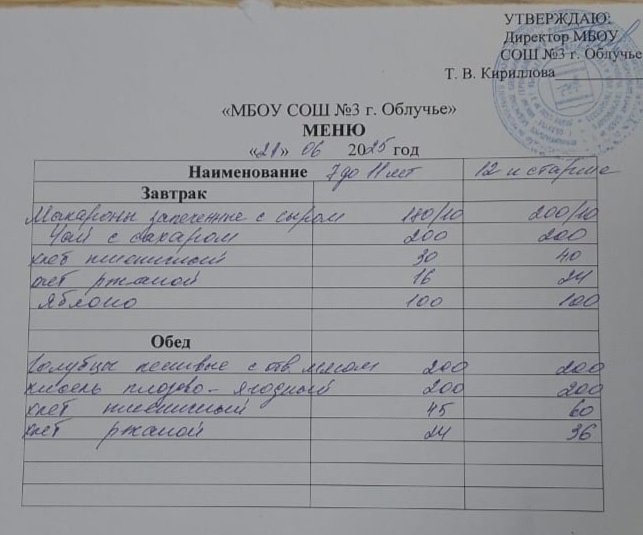 УТВЕРЖДАЮ:
Директор МБОУ
СОШ №3 г. Облучье
Т. В. Кириллова
«МБОУ СОШ №3 г. Облучье»
МЕНЮ
«21» 06 2025 год
Наименование 7 до 11 лет 12 и старше
Завтрак
Макароны запеченные с сыром 180/10 200/10
Чай с сахаром 200 200
хлеб пшеничный 30 40
хлеб ржаной 16 24
Яблоко 100 100
Обед
Голубцы ленивые с отв. мясом 200 200
кисель плодово-ягодный 200 200
хлеб пшеничный 45 60
хлеб ржаной 24 36